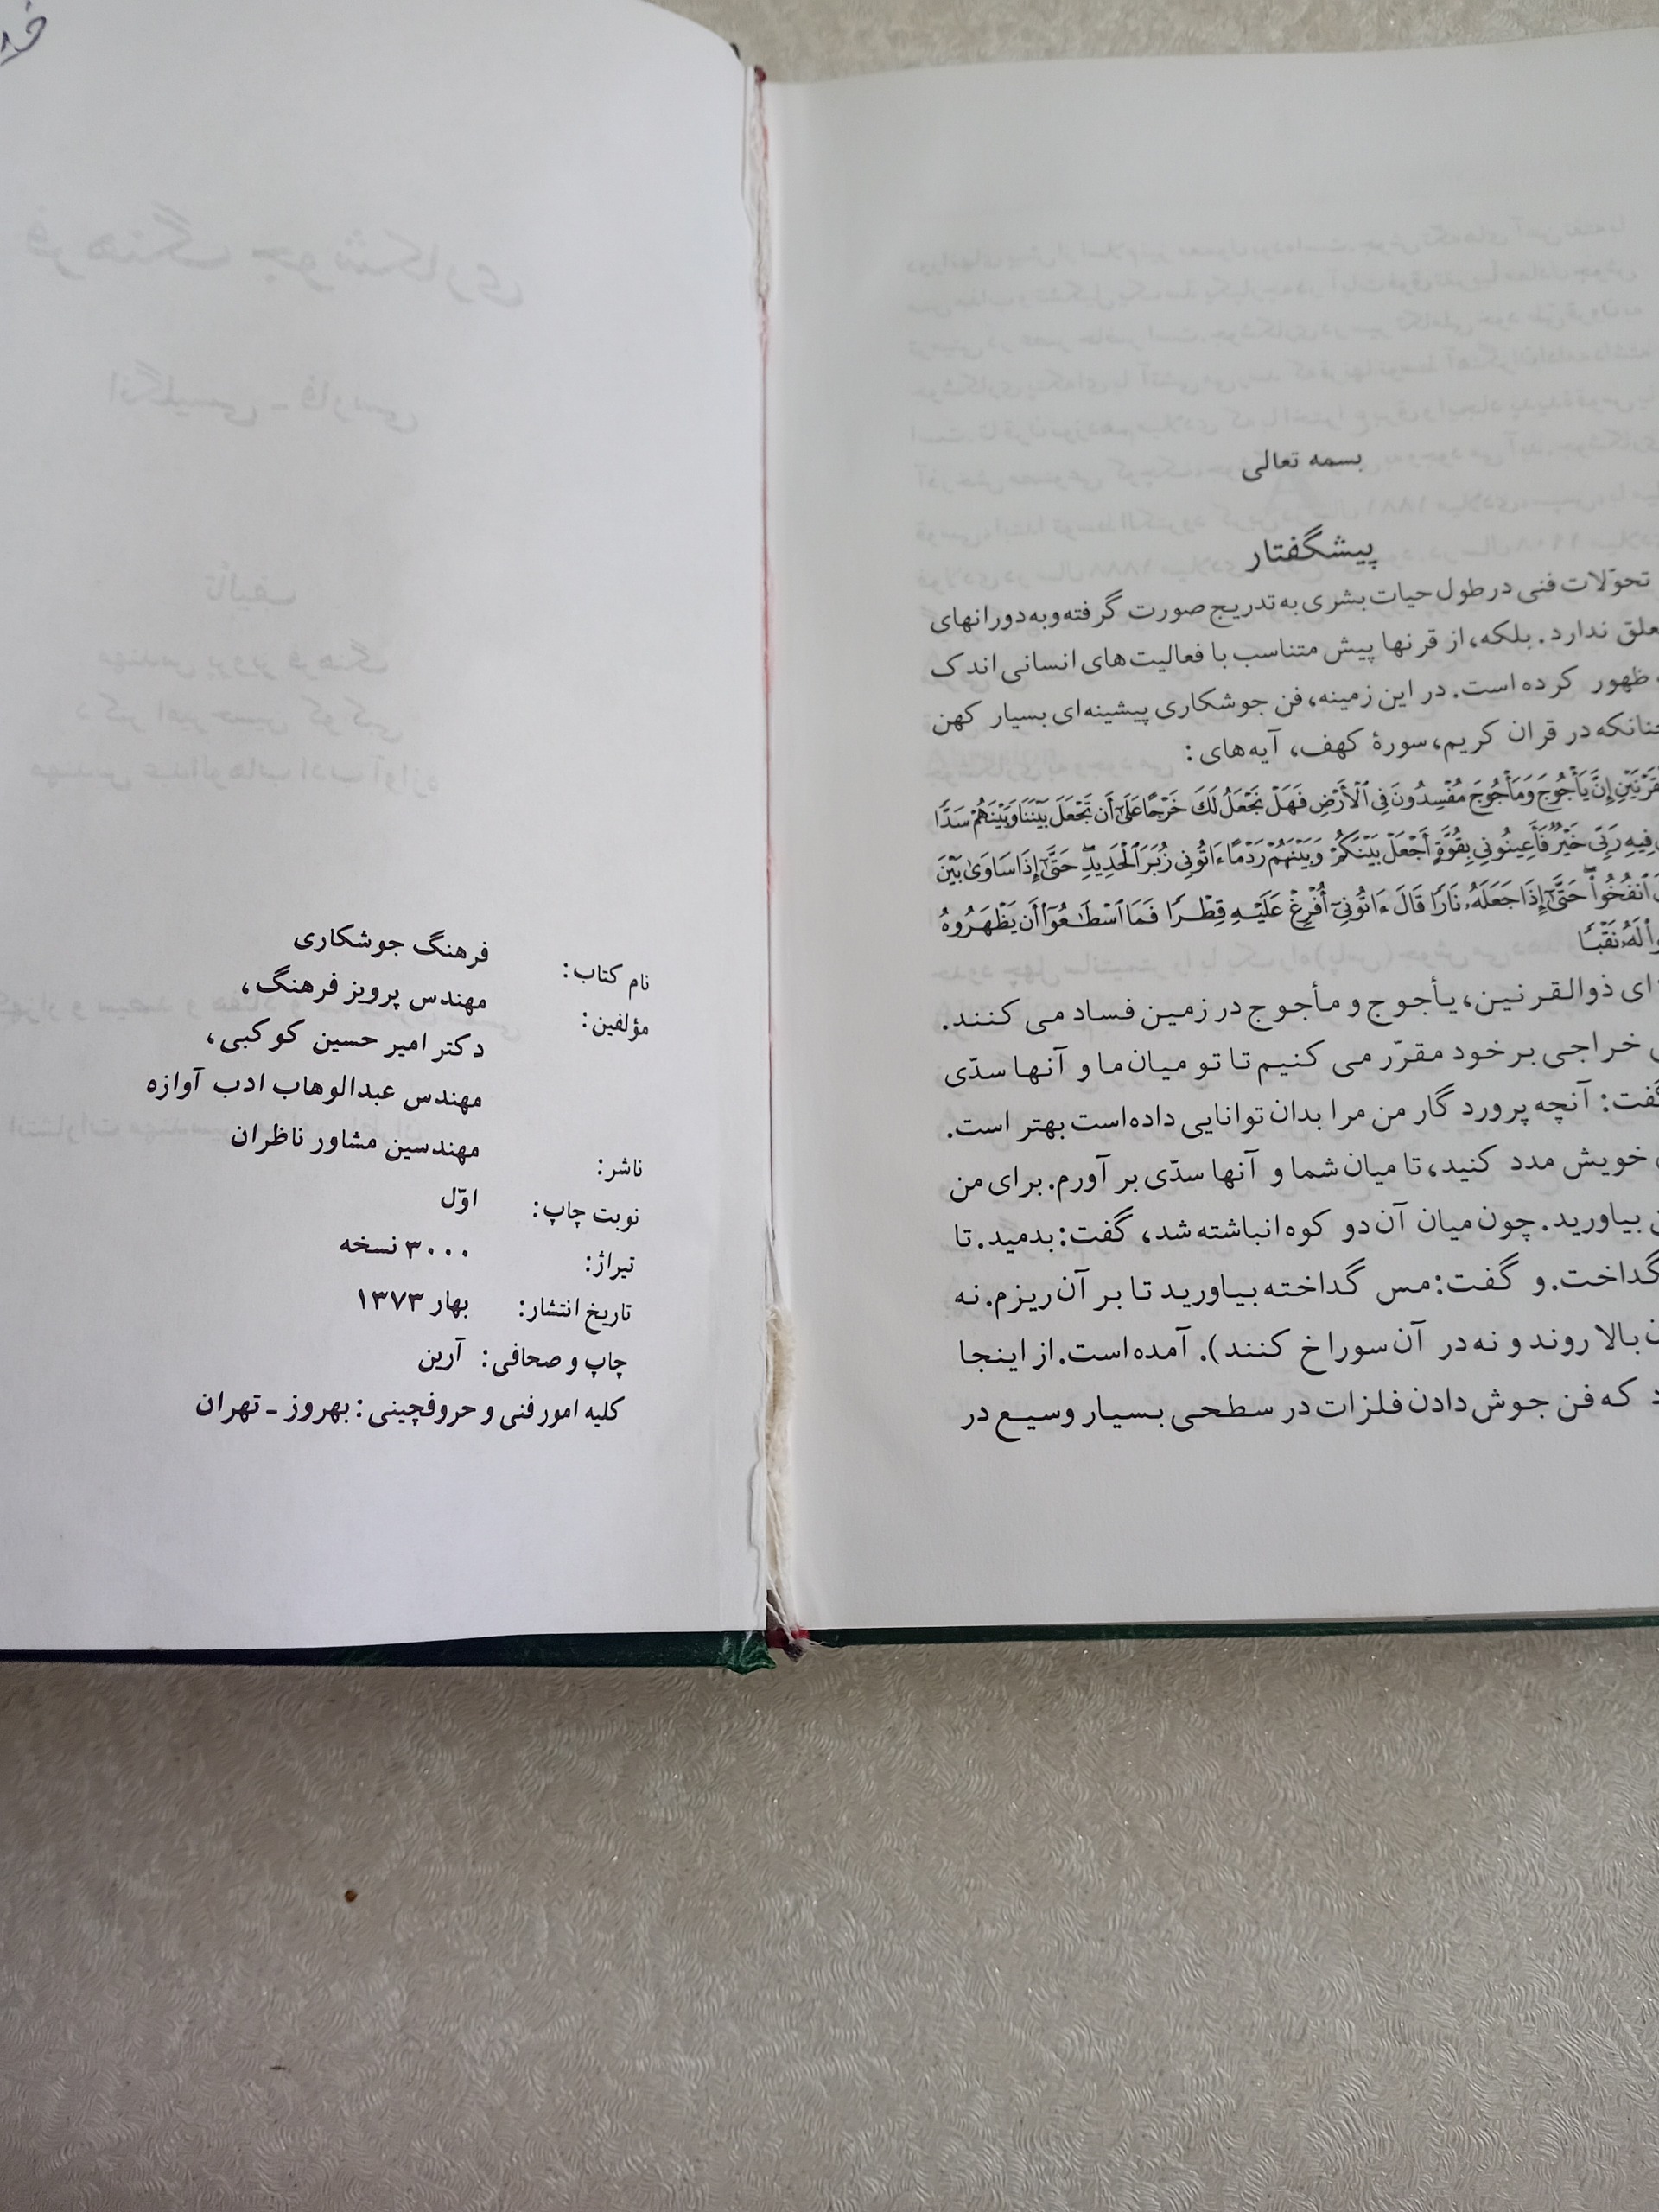 نام کتاب: فرهنگ جوشکاری
مؤلفین: مهندس پرویز فرهنگ،
دکتر امیر حسین کوکبی،
مهندس عبدالوهاب ادب آوازه
ناشر: مهندسین مشاور ناظران
نوبت چاپ: اوّل
تیراژ: ۳۰۰۰ نسخه
تاریخ انتشار: بهار ۱۳۷۳
چاپ و صحافی: آرین
کلیه امور فنی و حروفچینی: بهروز ـ تهران
بسمه تعالی
پیشگفتار
تحوّلات فنی در طول حیات بشری به تدریج صورت گرفته و به دورانهای
ندارد. بلکه، از قرنها پیش متناسب با فعالیت‌های انسانی اندک
ظهور کرده است. در این زمینه، فن جوشکاری پیشینه‌ای بسیار کهن
در قران کریم، سورهٔ کهف، آیه‌های:
إِنَّ يَأْجُوجَ وَمَأْجُوجَ مُفْسِدُونَ فِي ٱلْأَرْضِ فَهَلْ نَجْعَلُ لَكَ خَرْجًا عَلَىٰٓ أَن تَجْعَلَ بَيْنَنَا وَبَيْنَهُمْ سَدًّا
فِيهِ رَبِّي خَيْرٌ فَأَعِينُونِي بِقُوَّةٍ أَجْعَلْ بَيْنَكُمْ وَبَيْنَهُمْ رَدْمًا ءَاتُونِي زُبَرَ ٱلْحَدِيدِ حَتَّىٰٓ إِذَا سَاوَىٰ بَيْنَ
ٱنفُخُوا۟ حَتَّىٰٓ إِذَا جَعَلَهُۥ نَارًا قَالَ ءَاتُونِيٓ أُفْرِغْ عَلَيْهِ قِطْرًا فَمَا ٱسْطَـٰعُوٓا۟ أَن يَظْهَرُوهُ
لَهُۥ نَقْبًا
ای ذوالقرنین، یأجوج و مأجوج در زمین فساد می کنند.
خراجی بر خود مقرّر می کنیم تا تو میان ما و آنها سدّی
گفت: آنچه پروردگار من مرا بدان توانایی داده است بهتر است.
خویش مدد کنید، تا میان شما و آنها سدّی بر آورم. برای من
بیاورید. چون میان آن دو کوه انباشته شد، گفت: بدمید. تا
گداخت. و گفت: مس گداخته بیاورید تا بر آن ریزم. نه
بالا روند و نه در آن سوراخ کنند). آمده است. از اینجا
که فن جوش دادن فلزات در سطحی بسیار وسیع در